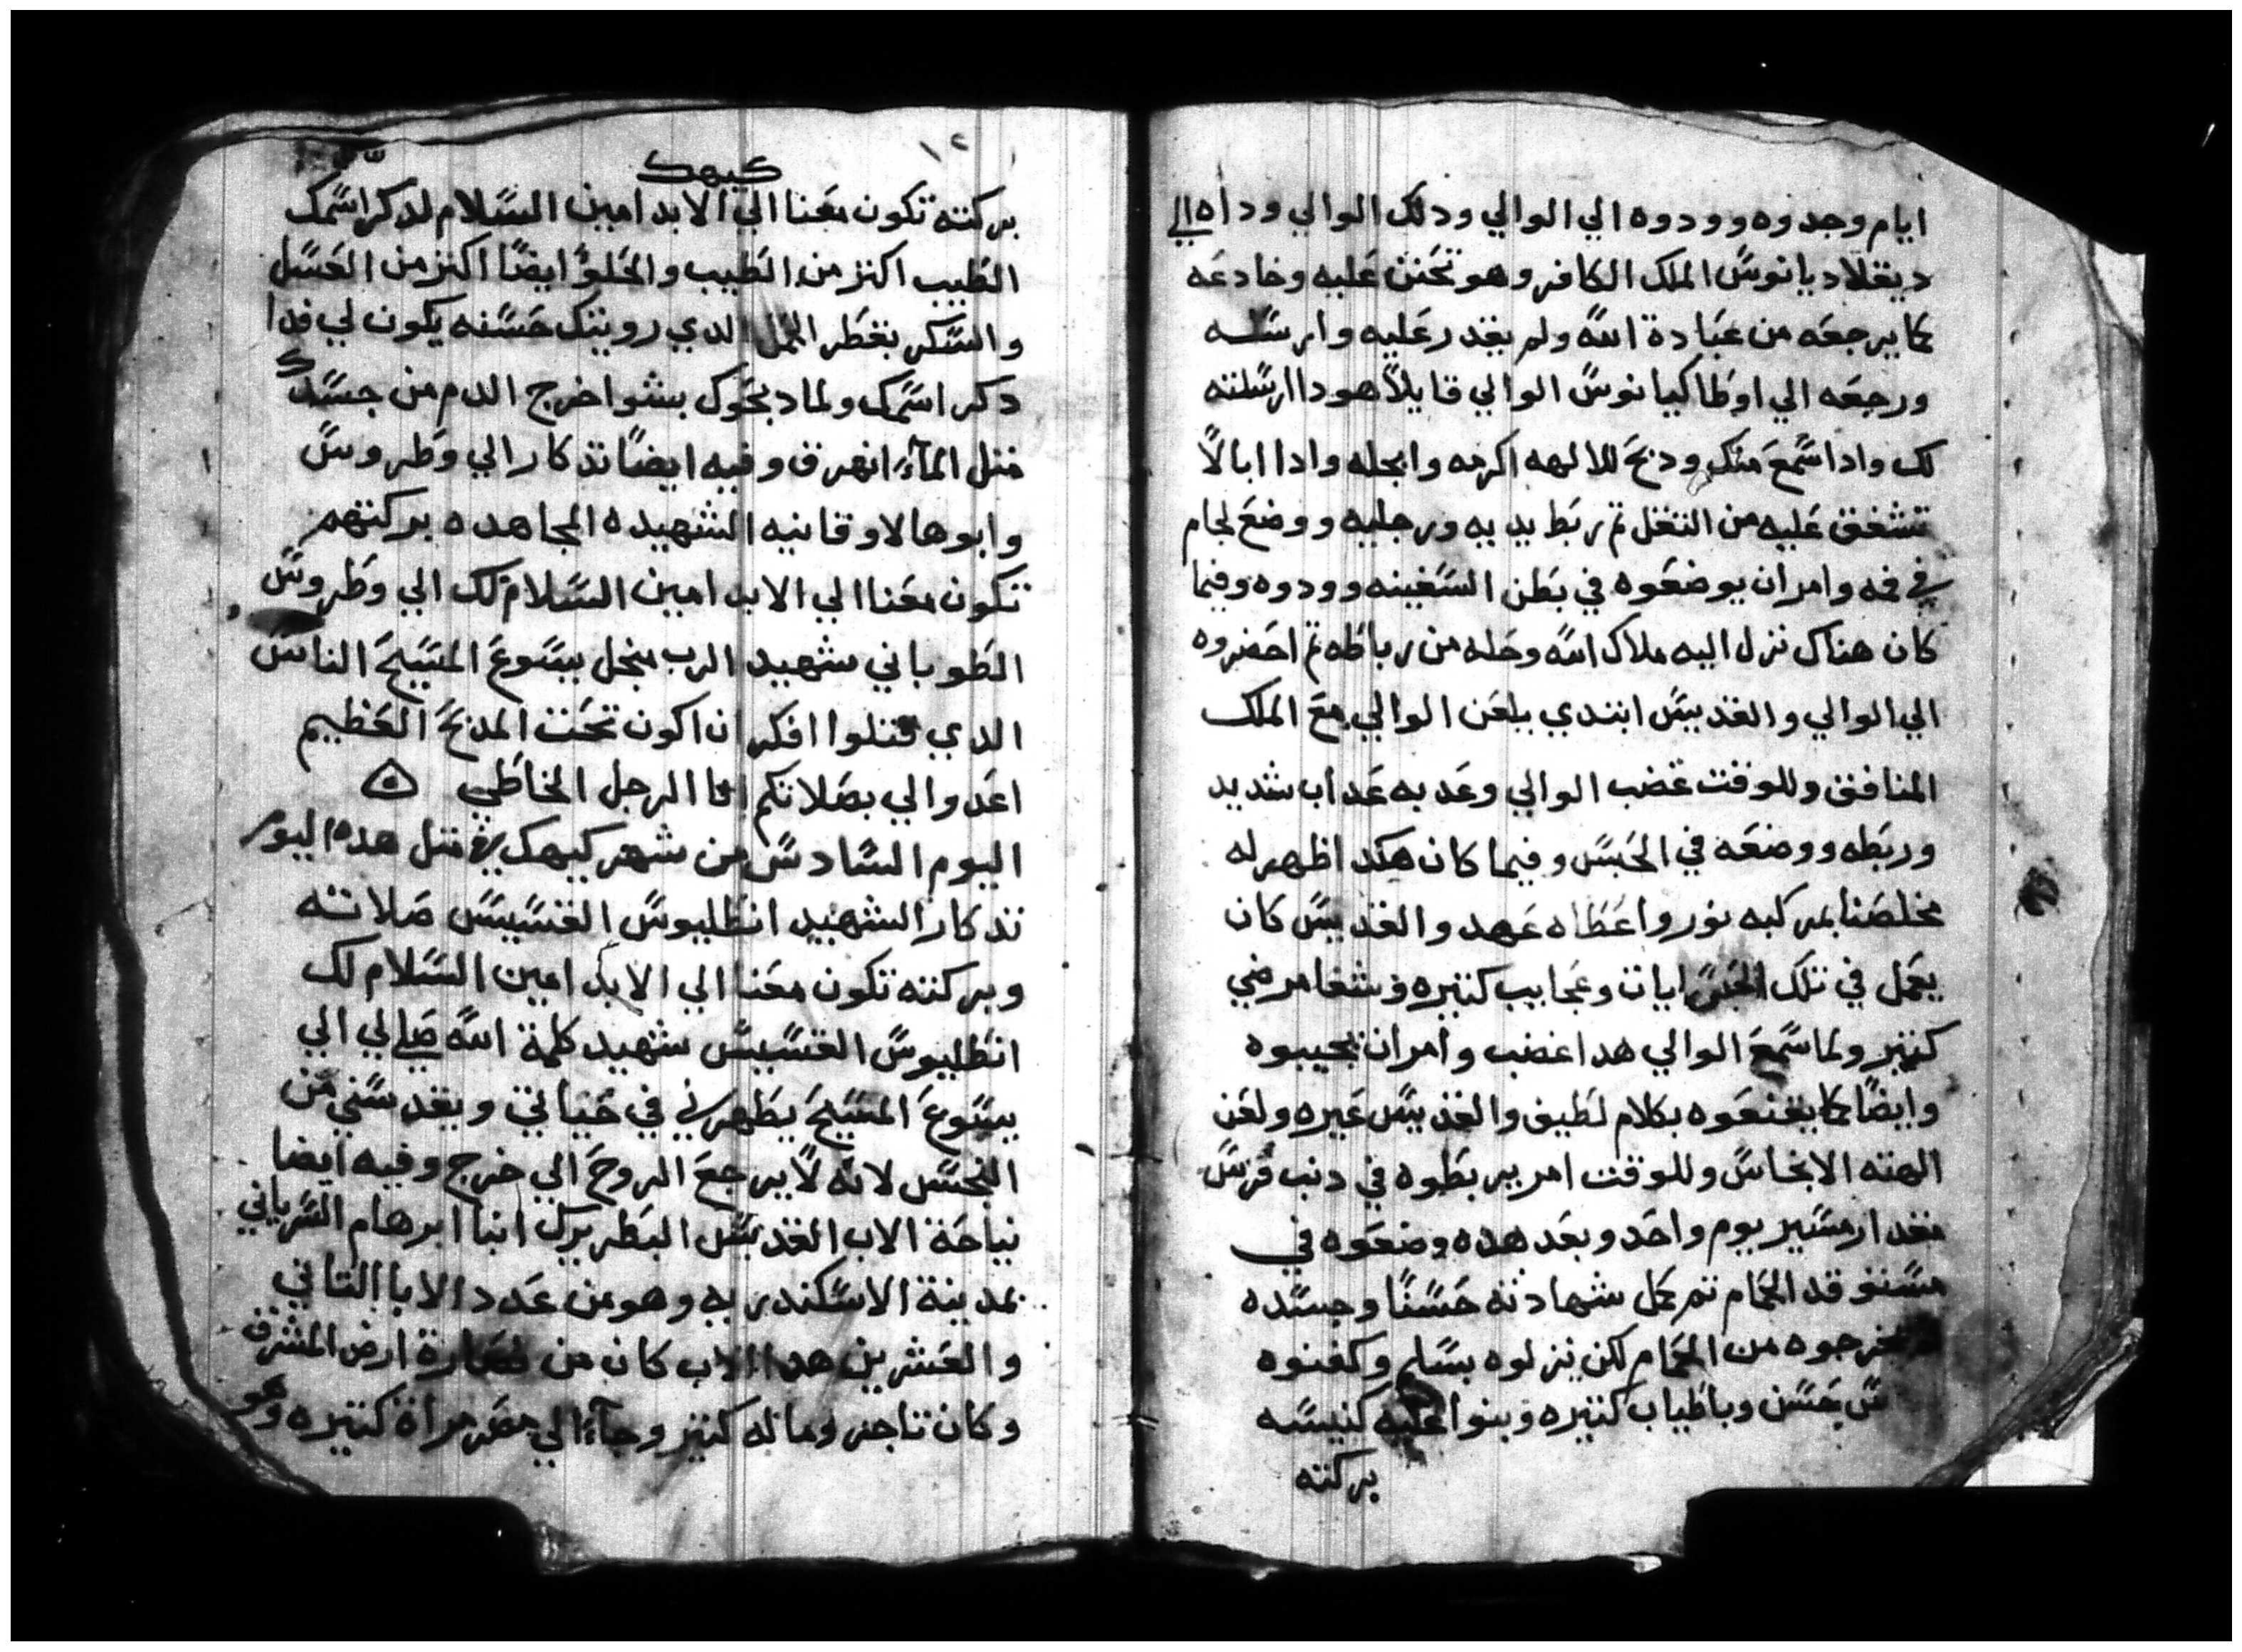 ايام وجدوه وودوه الي الوالي ودلك الوالي وداه الي
ديقلاديانوس الملك الكافر وهو تحنن عليه وخادعه
كما يرجعه من عبادة الله ولم يقدر عليه وارسله
ورجعه الي اوطاكيانوس الوالي قايلاً هودا ارسلته
لك وادا سمع منك ودبح للالهه اكرمه وابجله وادا ابا لا
تشفق عليه من القتل تم ربط يديه ورجليه ووضع لجام
في فمه وامر ان يوضعوه في بطن السفينه وودوه وفيما
كان هناك نزل اليه ملاك الله وحله من رباطه تم احضروه
الي الوالي والقديس ابتدي يلعن الوالي مع الملك
المنافق وللوقت غضب الوالي وعدبه عداب شديد
وربطه ووضعه في الحبس وفيما كان هكدا ظهر له
مخلصنا بمركبه نور واعطاه عهد والقديس كان
يعمل في تلك الحبس ايات وعجايب كتيره وشفا مرضي
كتير ولما سمع الوالي هدا غضب وامر ان يجيبوه
وايضاً كما يقنعوه بكلام لطيف والقديس عيره ولعن
الهته الانجاس وللوقت امر يربطوه في دنب فرس
مقدار مسير يوم واحد وبعد هده وضعوه في
مستوقد الحمام تم كمل شهادته حسنًا وجسده
خرجوه من الحمام لكن ينزلوه بسلم وكفنوه
بحسن وباطياب كتيره وبنوا عليه كنيسه
بركته
١٢
كيهك
بركته تكون معنا الي الابد امين السلام لدكر اسمك
الطيب اكتر من الطيب والحلو ايضًا اكتر من العسل
والسكر بقطر الدي رويتك حسنه يكون لي فدا
دكر اسمك ولما دبحوك بشوا خرج الدم من جسدك
متل المآء انهرق وفيه ايضاً تدكار الي وطروس
وابوها لاوقانيه الشهيده المجاهده بركتهم
تكون معنا الي الابد امين السلام لك الي وطروس
الطوباني شهيد الرب بنجل يسوع المسيح الناس
الدي قتلوا افكر ان اكون تحت المدبح العظيم
اعدوا لي بصلاتكم انا الرجل الخاطي
اليوم السادس من شهر كيهك في متل هده اليوم
تدكار الشهيد انطليوس القسيس صلاته
وبركته تكون معنا الي الابد امين السلام لك
انطليوس القسيس شهيد كلمة الله صلي لي الي
يسوع المسيح يطهرني في حياتي ويقدسني من
النجس لانه لا يرجع الروح الي خرج وفيه ايضا
نياحة الاب القديس البطريرك انبا ابرهام السرياني
بمدينة الاسكندريه وهو من عدد الابا التاني
والعشرين هدا الاب كان من نصارة ارض المشرق
وكان تاجر وماله كتير وجآء الي مصر مراة كتيره وهو